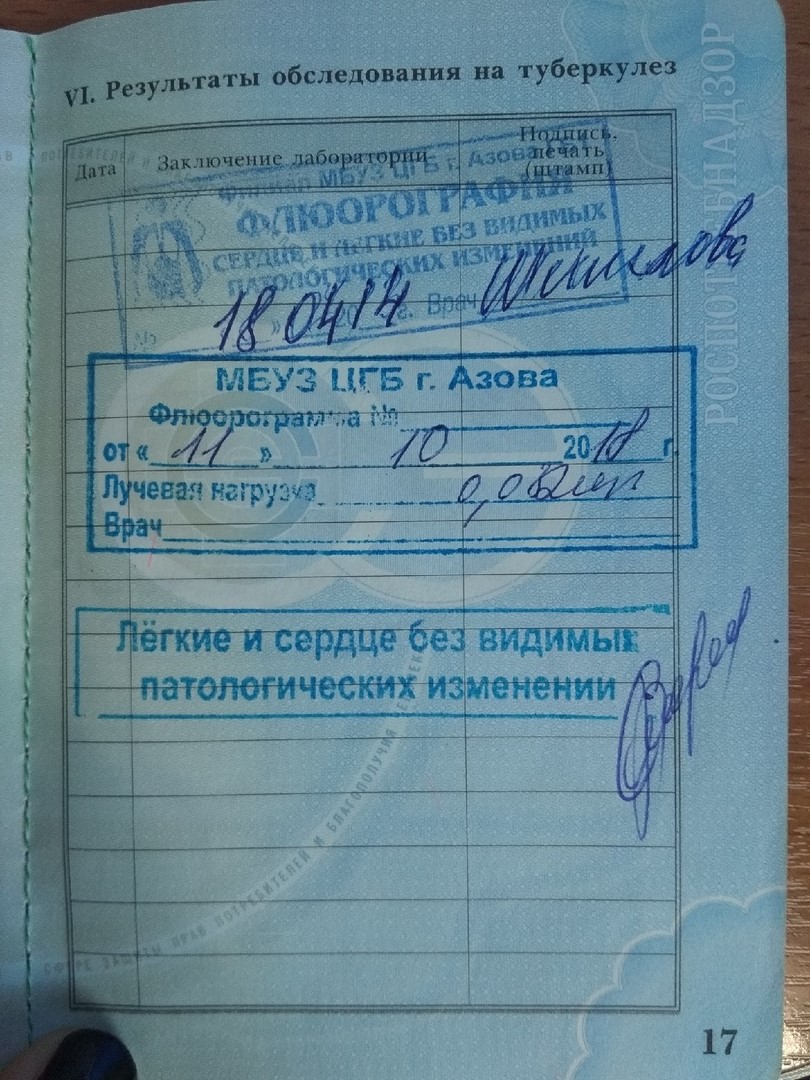 VI. Результаты обследования на туберкулез
Дата
Заключение лаборатории
Подпись,
печать
(штамп)
МБУЗ ЦГБ г. Азова
ФЛЮОРОГРАФИЯ
СЕРДЦЕ И ЛЕГКИЕ БЕЗ ВИДИМЫХ
ПАТОЛОГИЧЕСКИХ ИЗМЕНЕНИЙ
№ » 20 г. Врач
18 04 14
МБУЗ ЦГБ г. Азова
Флюорограмма №
от « 11 » 10 2018 г.
Лучевая нагрузка
Врач
Лёгкие и сердце без видимых
патологических изменении
РОСПОТРЕБНАДЗОР
СФЕРЕ ЗАЩИТЫ ПРАВ ПОТРЕБИТЕЛЕЙ И БЛАГОПОЛУЧИЯ
17